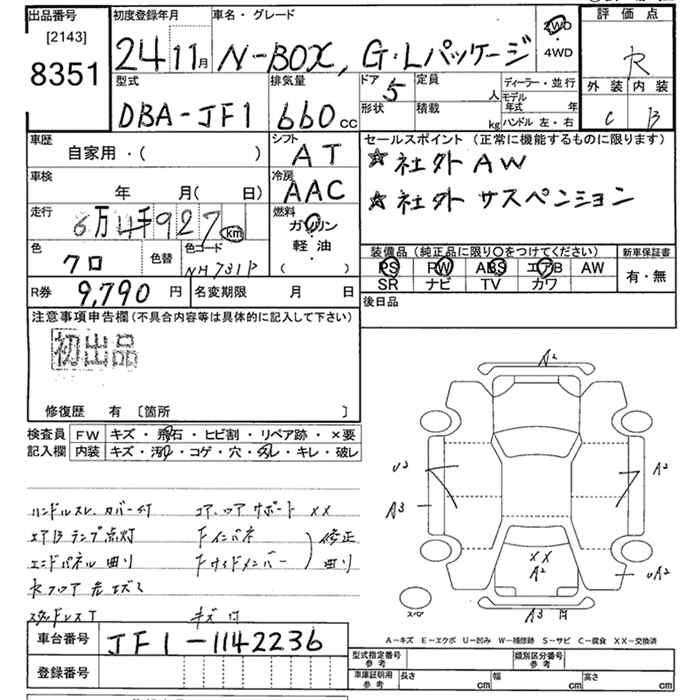 出品番号 初度登録年月 車名・グレード 評価点
[2143]
8351 24 11月 N-BOX, G・Lパッケージ 2WD R
4WD
型式 排気量 ドア 定員 ディーラー・並行 外装 内装
DBA-JF1 660cc 5 人 モデル年式 年 C B
形状 積載 kg ハンドル 左・右
車歴 シフト セールスポイント (正常に機能するものに限ります)
自家用・( ) AT ☆社外AW
車検 冷房 ☆社外 サスペンション
年 月( 日) AAC
走行 燃料
6万4千927 km ガソリン
軽油
( )
色 色替 色コード 装備品(純正品に限り○をつけてください) 新車保証書
クロ NH731P PS PW ABS エアB AW 有・無
SR ナビ TV カワ
R券 9,790円 名変期限 月 日 後日品
注意事項申告欄(不具合内容等は具体的に記入して下さい)
初出品
修復歴 有 [箇所 ]
検査員 FW キズ・飛石・ヒビ割・リペア跡・×要
記入欄 内装 キズ・汚れ・コゲ・穴・スレ・キレ・破レ
ハンドルスレ、カバー付 コア、ロアサポート ××
エアBランプ点灯 Fインパネ 修正
エンドパネル曲り Fサイドメンバー 曲り
キズ付
A2
U2
A3
A2
××
A2
UA2
A3
A-キズ E-エクボ U-凹み W-補修跡 S-サビ C-腐食 XX-交換済
車台番号 JF1-1142236
登録番号
型式指定番号 参考 類別区分番号 参考
車庫証明用 参考 長さ cm 幅 cm 高さ cm